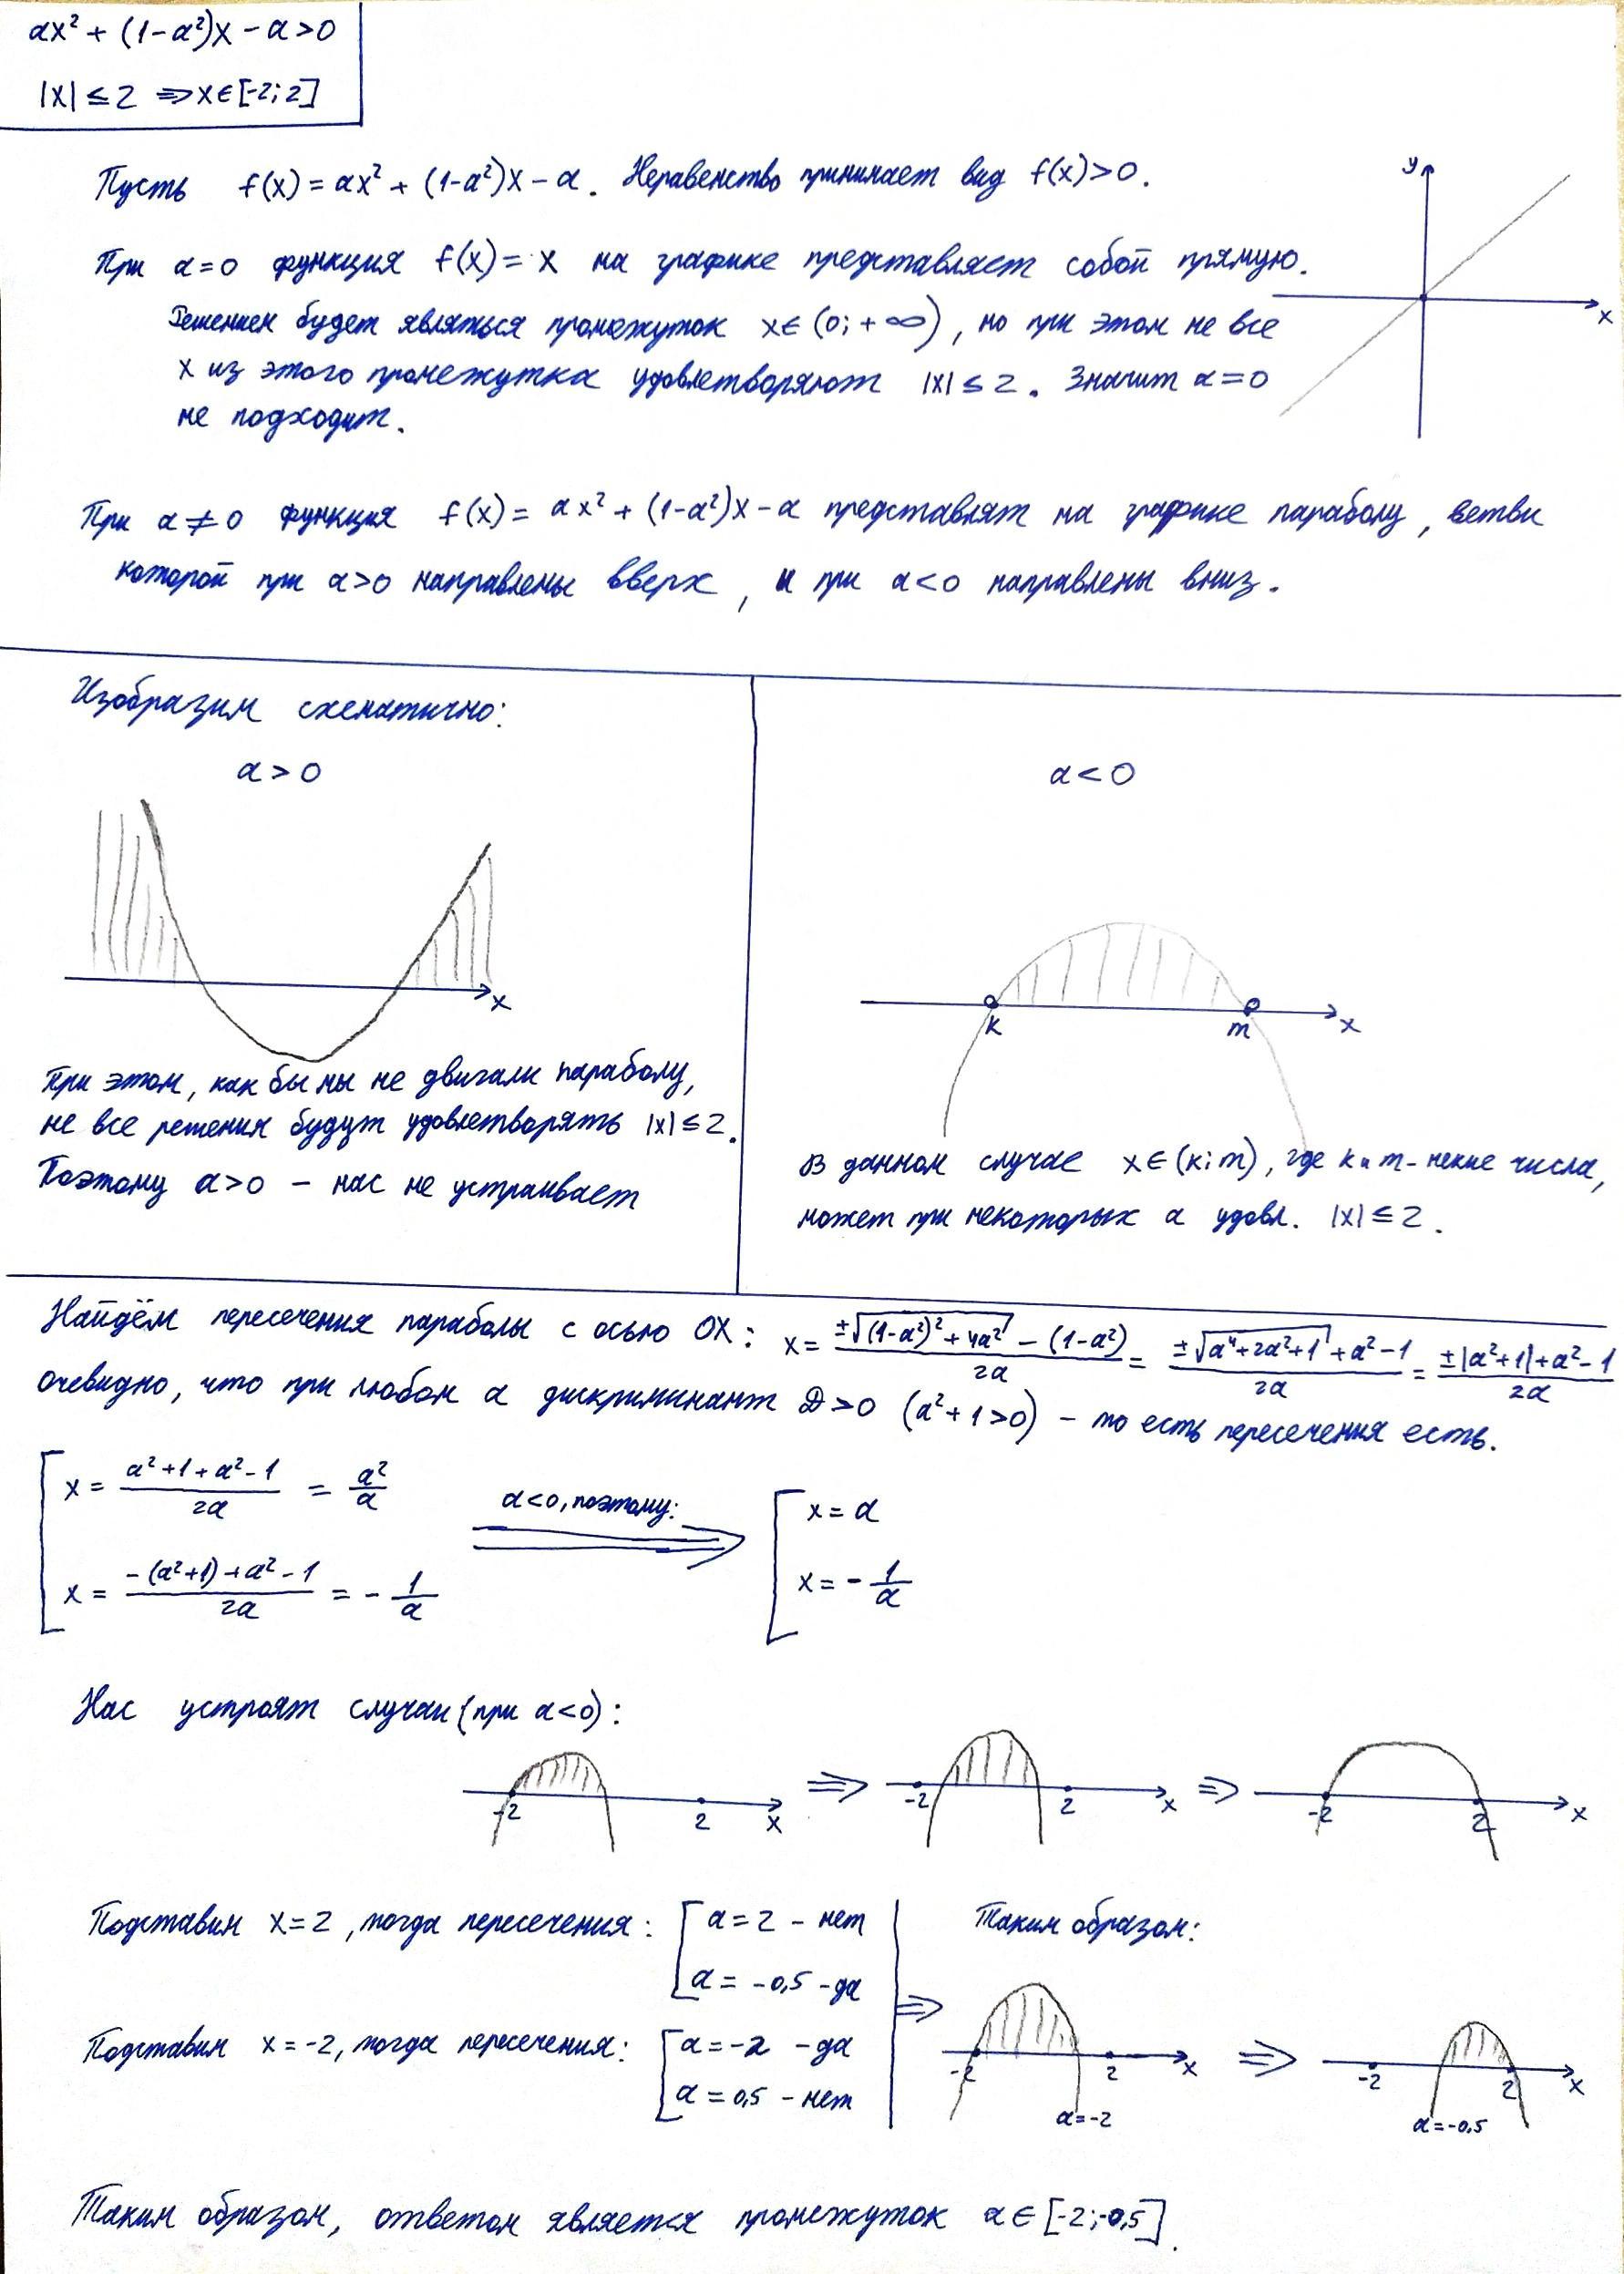 ax² + (1-a²)x - a > 0
|x| ≤ 2 ⇒ x ∈ [-2; 2]
Пусть f(x) = ax² + (1-a²)x - a. Неравенство принимает вид f(x) > 0.
y
x
При a=0 функция f(x) = x на графике представляет собой прямую.
Решением будет являться промежуток x ∈ (0; +∞), но при этом не все
x из этого промежутка удовлетворяют |x| ≤ 2. Значит a=0
не подходит.
При a ≠ 0 функция f(x) = ax² + (1-a²)x - a представлят на графике параболу, ветви
которой при a>0 направлены вверх, и при a<0 направлены вниз.
Изобразим схематично:
a > 0
x
При этом, как бы мы не двигали параболу,
не все решения будут удовлетворять |x| ≤ 2.
Поэтому a>0 - нас не устраивает
a < 0
k m x
В данном случае x ∈ (k; m), где k и m - некие числа,
может при некоторых a удовл. |x| ≤ 2.
Найдём пересечения параболы с осью OX: x = (±√((1-a²)² + 4a²) - (1-a²))/2a = (±√(a⁴+2a²+1) + a² - 1)/2a = (±|a²+1| + a² - 1)/2a
очевидно, что при любом a дискриминант D > 0 (a²+1>0) - то есть пересечения есть.
[ x = (a²+1+a²-1)/2a = a²/a
x = (-(a²+1)+a²-1)/2a = -1/a
a<0, поэтому:
⇒
[ x = a
x = -1/a
Нас устроят случаи (при a<0):
-2 2 x ⇒ -2 2 x ⇒ -2 2 x
Подставим x=2, тогда пересечения: [ a = 2 - нет
a = -0,5 - да
Подставим x=-2, тогда пересечения: [ a = -2 - да
a = 0,5 - нет
⇒
Таким образом:
-2 2 x
a=-2
⇒
-2 2 x
a=-0,5
Таким образом, ответом является промежуток a ∈ [-2; -0,5].